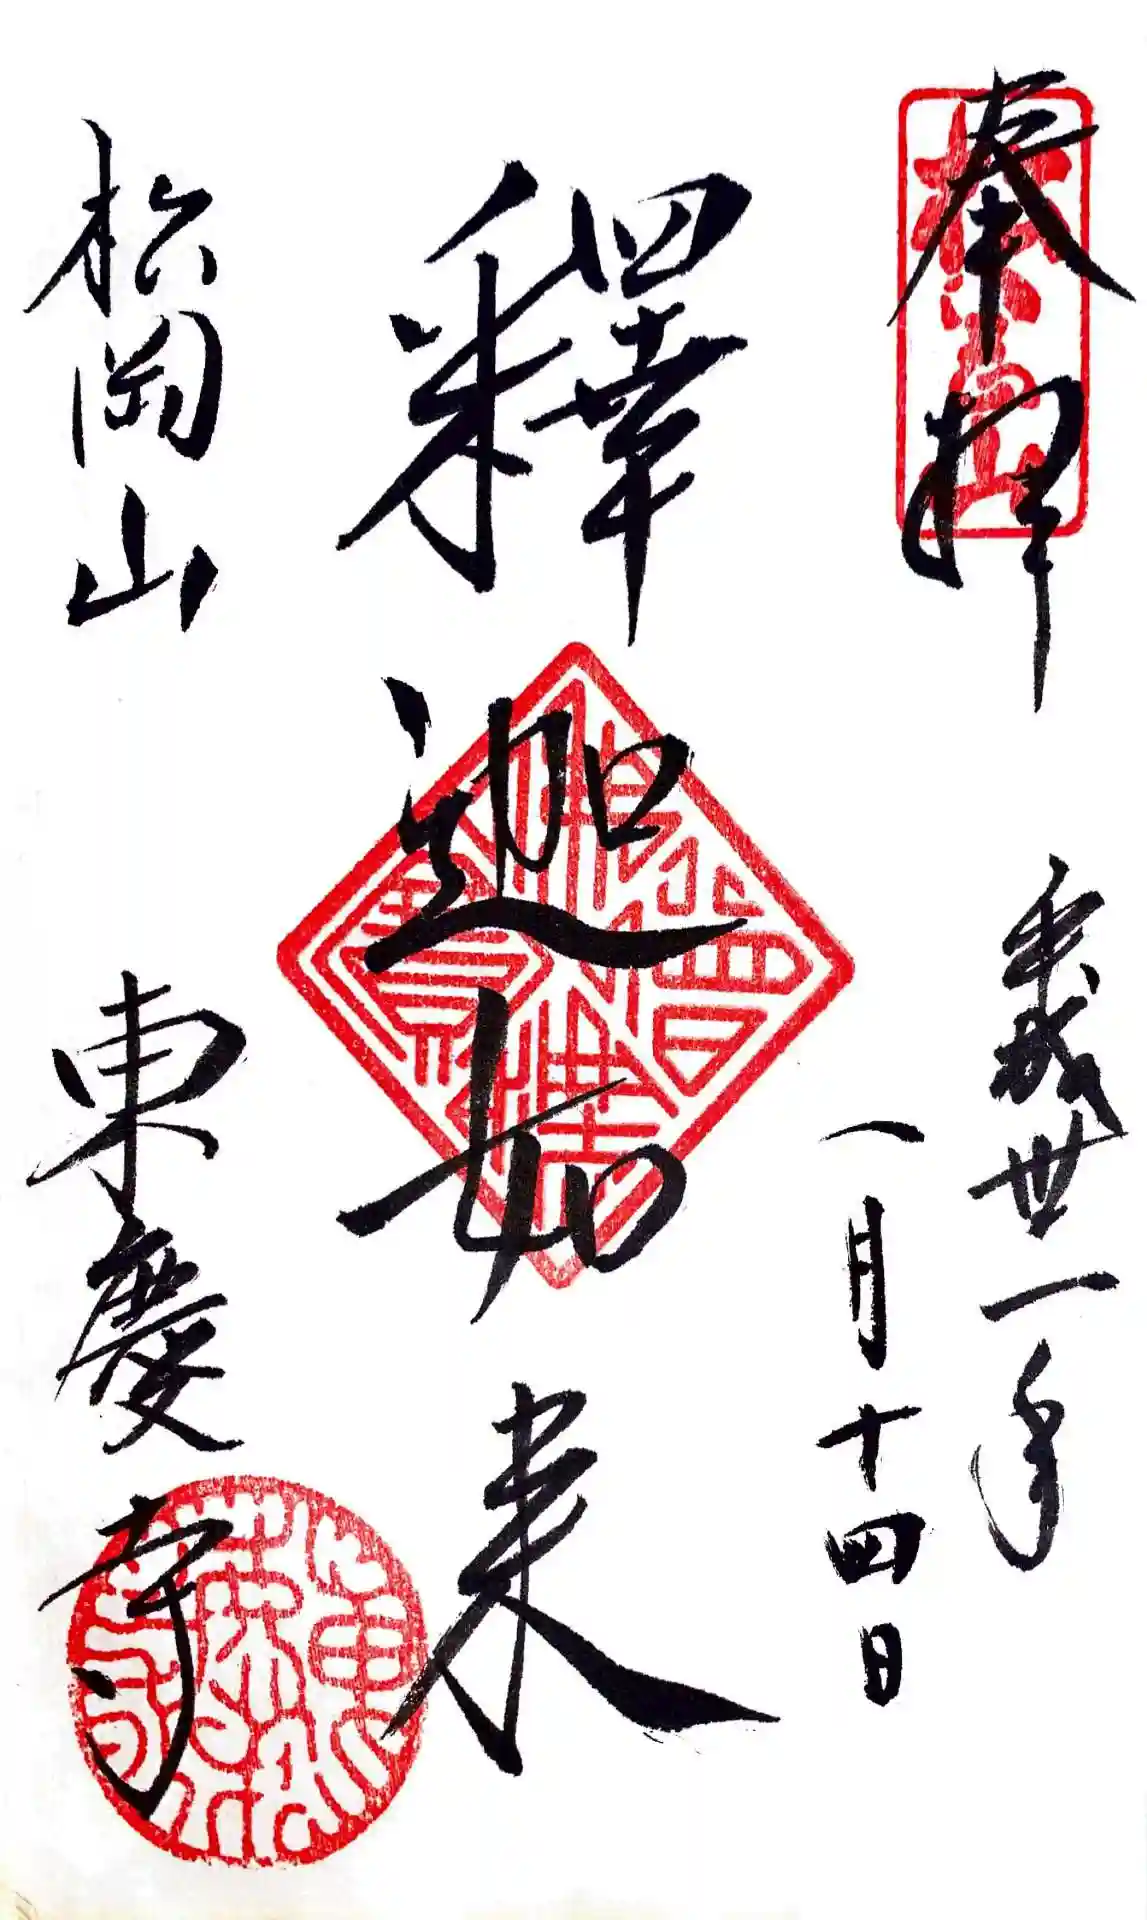 奉拝
平成丗一年
一月十四日
釋迦如来
松岡山
東慶寺